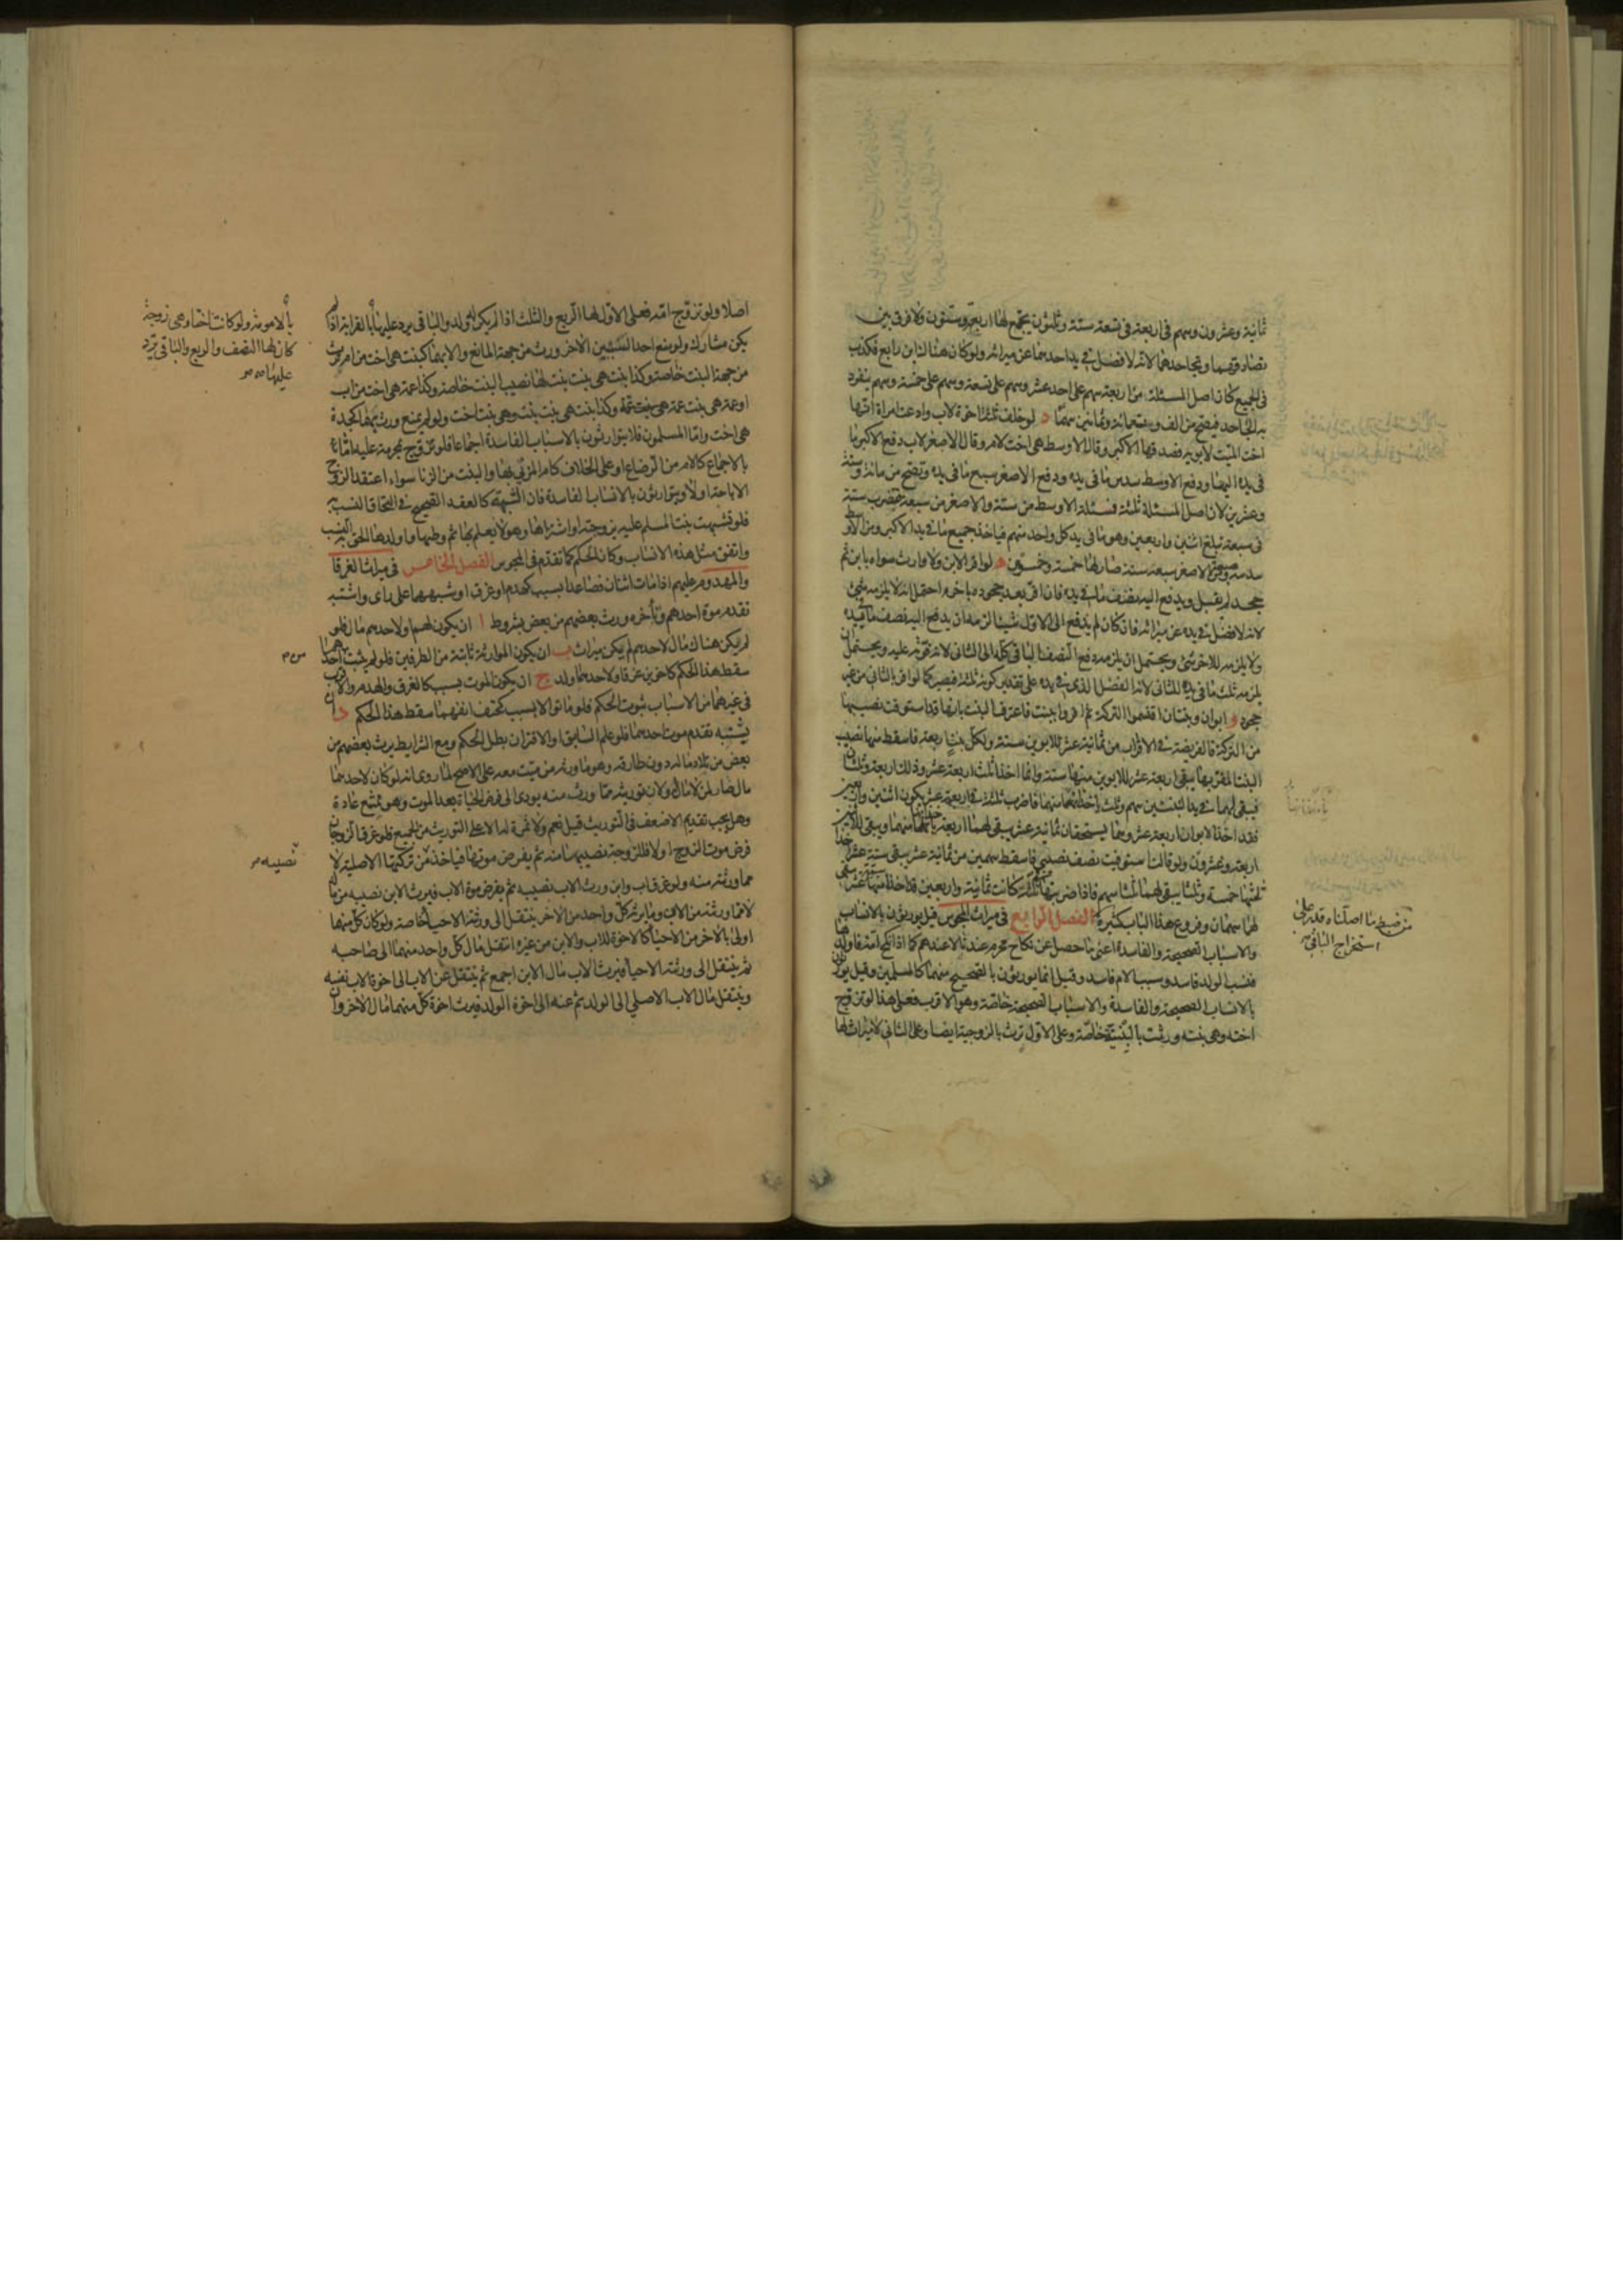 ثمانية وعشرون وسهم فى اربعة فى تسعة ستة وثلثون يجتمع لها اربعة وستون ولا فرق بين
تصادقهما وتجاحدهما لانه لا فضل فى يد احدهما عن ميراثه ولو كان هنا لثابن رابع فكذب
فى الجميع كان اصل المسئلة من اربعة سهم على احد عشر وسهم على تسعة وسهم على خمسة وسهم ينفرد
به الجاحد فيصح من الف وتسعمائة وثمانين سهما د لو خلف ثلثة اخوة لاب وادعت امراة انها
اخت الميت لابويه فصدقها الاكبر وقال الاوسط هى اخت لام وقال الاصغر لاب دفع الاكبر ما
فى يده اليها ودفع الاوسط سدس ما فى يده ودفع الاصغر سبع ما فى يده وتصح من مائة وستة
وعشرين لان اصل المسئلة ثلثة فمسئلة الاوسط من ستة والاصغر من سبعة تضرب ستة
فى سبعة تبلغ اثنين واربعين وهو ما فى يد كل واحد منهم فياخذ جميع ما فى يد الاكبر ومن الاوسط
سدسه سبعة ومن الاصغر سبعه ستة صار لها خمسة وخمسون ه لو اقر الابن ولا وارث سواه بابن ثم
جحد لم يقبل ويدفع اليه نصف ما فى يده فان اقر بعد جحوده باخر احتمل انه لا يلزمه شئ
لانه لا فضل فى يده عن ميراثه فان كان لم يدفع الى الاول شيئا لزمه ان يدفع اليه نصف ما فى يده
ولا يلزمه للاخر شئ ويحتمل ان يلزمه دفع النصف الباقى كله الى الثانى لانه فوته عليه ويحتمل ان
يلزمه ثلث ما فى يده للثانى لانه الفضل الذى فى يده على تقدير كونهم ثلثة فيصير كما لو اقر بالثانى من غير
جحود و ابوان وبنتان اقتسموا التركة ثم اقروا ببنت فاعترفت البنت بانها قد استوفت نصيبها
من التركة فالفريضة فى الاقرار من ثمانية عشر للابوين ستة ولكل بنت اربعة فاسقط منها نصيب
البنت المقر بها يبقى اربعة عشر للابوين منها ستة وانما اخذا ثلث اربعة عشر وذلك اربعة وثلثان
فيبقى لهما فى يد البنتين سهم وثلث ياخذانها منهما فاضرب ثلثة فى اربعة عشر يكون اثنين واربعين
فقد اخذ الابوان اربعة عشر وهما يستحقان ثمانية عشر يبقى لهما اربعة ياخذانها منهما ويبقى للابنتين
اربعة وعشرون ولو قالت استوفيت نصف نصيبى فاسقط سهمين من ثمانية عشر يبقى ستة عشر اخذا
ثلثها خمسة وثلثا يبقى لهما ثلثا سهم فاذا ضربتها فى ثلثة كانت ثمانية واربعين قد اخذا منها ستة عشر يبقى
لهما سهمان وفروع هذا الباب كثيرة الفصل الرابع فى ميراث المجوس قيل يورثون بالانساب
والاسباب الصحيحة والفاسدة اعنى ما حصل عن نكاح محرم عندنا لا عندهم كما اذا نكح امه فاولدها
فنسب الولد فاسد وسبب الام فاسد وقيل انما يورثون بالصحيح منهما كالمسلمين وقيل يورثون
بالانساب الصحيحة والفاسدة والاسباب الصحيحة خاصة وهو الاقرب فعلى هذا لو تزوج
اخته وهى بنته ورثت بالبنتية خاصة وعلى الاول ترث بالزوجية ايضا وعلى الثانى لا ميراث لها
من ضبط ما اصلناه قدر على
استخراج الباقى
اصلا ولو تزوج امه فعلى الاول لها الربع والثلث اذا لم يكن ولد والباقى يرد عليها بالقرابة اذا لم
يكن مشارك ولو منع احد السببين الاخر ورث من جهة المانع والا بهما كبنت هى اخت من ام ترث
من جهة البنت خاصة وكذا بنت هى بنت بنت لها نصيب البنت خاصة وكذا عمة هى اخت من اب
او عمة هى بنت عمة وكذا بنت هى بنت بنت وهى بنت اخت ولو لم يمنع ورث بهما كجدة
هى اخت واما المسلمون فلا يتوارثون بالاسباب الفاسدة اجماعا فلو تزوج بمحرمة عليه اما
بالاجماع كالام من الرضاع او على الخلاف كام المزنى بها والبنت من الزنا سواء اعتقد الزوج
الاباحة او لا ويتوارثون بالانساب الفاسدة فان الشبهة كالعقد الصحيح فى التحاق النسب به
فلو تشبهت بنت المسلم عليه بزوجته او اشتراها وهو لا يعلم بها ثم وطيها واولدها لحق به النسب
واتفق مثل هذه الانساب وكان الحكم كما تقدم فى المجوس الفصل الخامس فى ميراث الغرقا
والمهدوم عليهم اذا مات اثنان فصاعدا بسبب كهدم او غرق او شبههما على راى واشتبه
تقدم موت احدهم وتأخره ورث بعضهم من بعض بشروط ا ان يكون لهم او لاحدهم مال فلو
لم يكن هناك مال لاحدهم لم يكن ميراث ب ان يكون الموارثة ثابتة من الطرفين فلو لم يثبت من احدهما
سقط هذا الحكم كاخوين غرقا ولاحدهما ولد ج ان يكون الموت بسبب كالغرق والهدم والاقرب
فى غيرهما من الاسباب ثبوت الحكم فلو ماتوا لا بسبب كحتف انفهما سقط هذا الحكم د ان
يشتبه تقدم موت احدهما فلو علم السابق او الاقتران بطل الحكم ومع الشرايط يرث بعضهم من
بعض من تلاد ماله دون طارفه وهو ما ورثه من ميت معه على الاصح لما روى انه لو كان لاحدهما
مال صار لمن لا مال له ولان توريثه مما ورث منه يودى الى فرض الحياة بعد الموت وهو ممتنع عادة
وهل يجب تقديم الاضعف فى التوريث قيل نعم ولا ثمرة له الا على التوريث من الجميع فلو غرق الزوجان
فرض موت الزوج اولا فللزوجة نصيبها منه ثم يفرض موتها فياخذ من تركتها الاصلية لا
مما ورثته منه ولو غرق اب وابن ورث الاب نصيبه ثم يفرض موت الاب فيرث الابن نصيبه من ماله
لا مما ورثه من الاب وما يرثه كل واحد من الاخر ينتقل الى ورثته الاحياء خاصة ولو كان كل منهما
اولى بالاخر من الاحياء كالاخوة للاب والابن من غيره انتقل مال كل واحد منهما الى صاحبه
ثم ينتقل الى ورثته الاحياء فيرث الاب مال الابن اجمع ثم ينتقل عن الاب الى اخوة الاب نفسه
وينتقل مال الاب الاصلى الى الولد ثم عنه الى اخوة الولد فيرث اخوة كل منهما مال الاخر وان
بالامومة ولو كانت اختا وهى زوجة
كان لها النصف والربع والباقى يرد
عليها
نصيبه